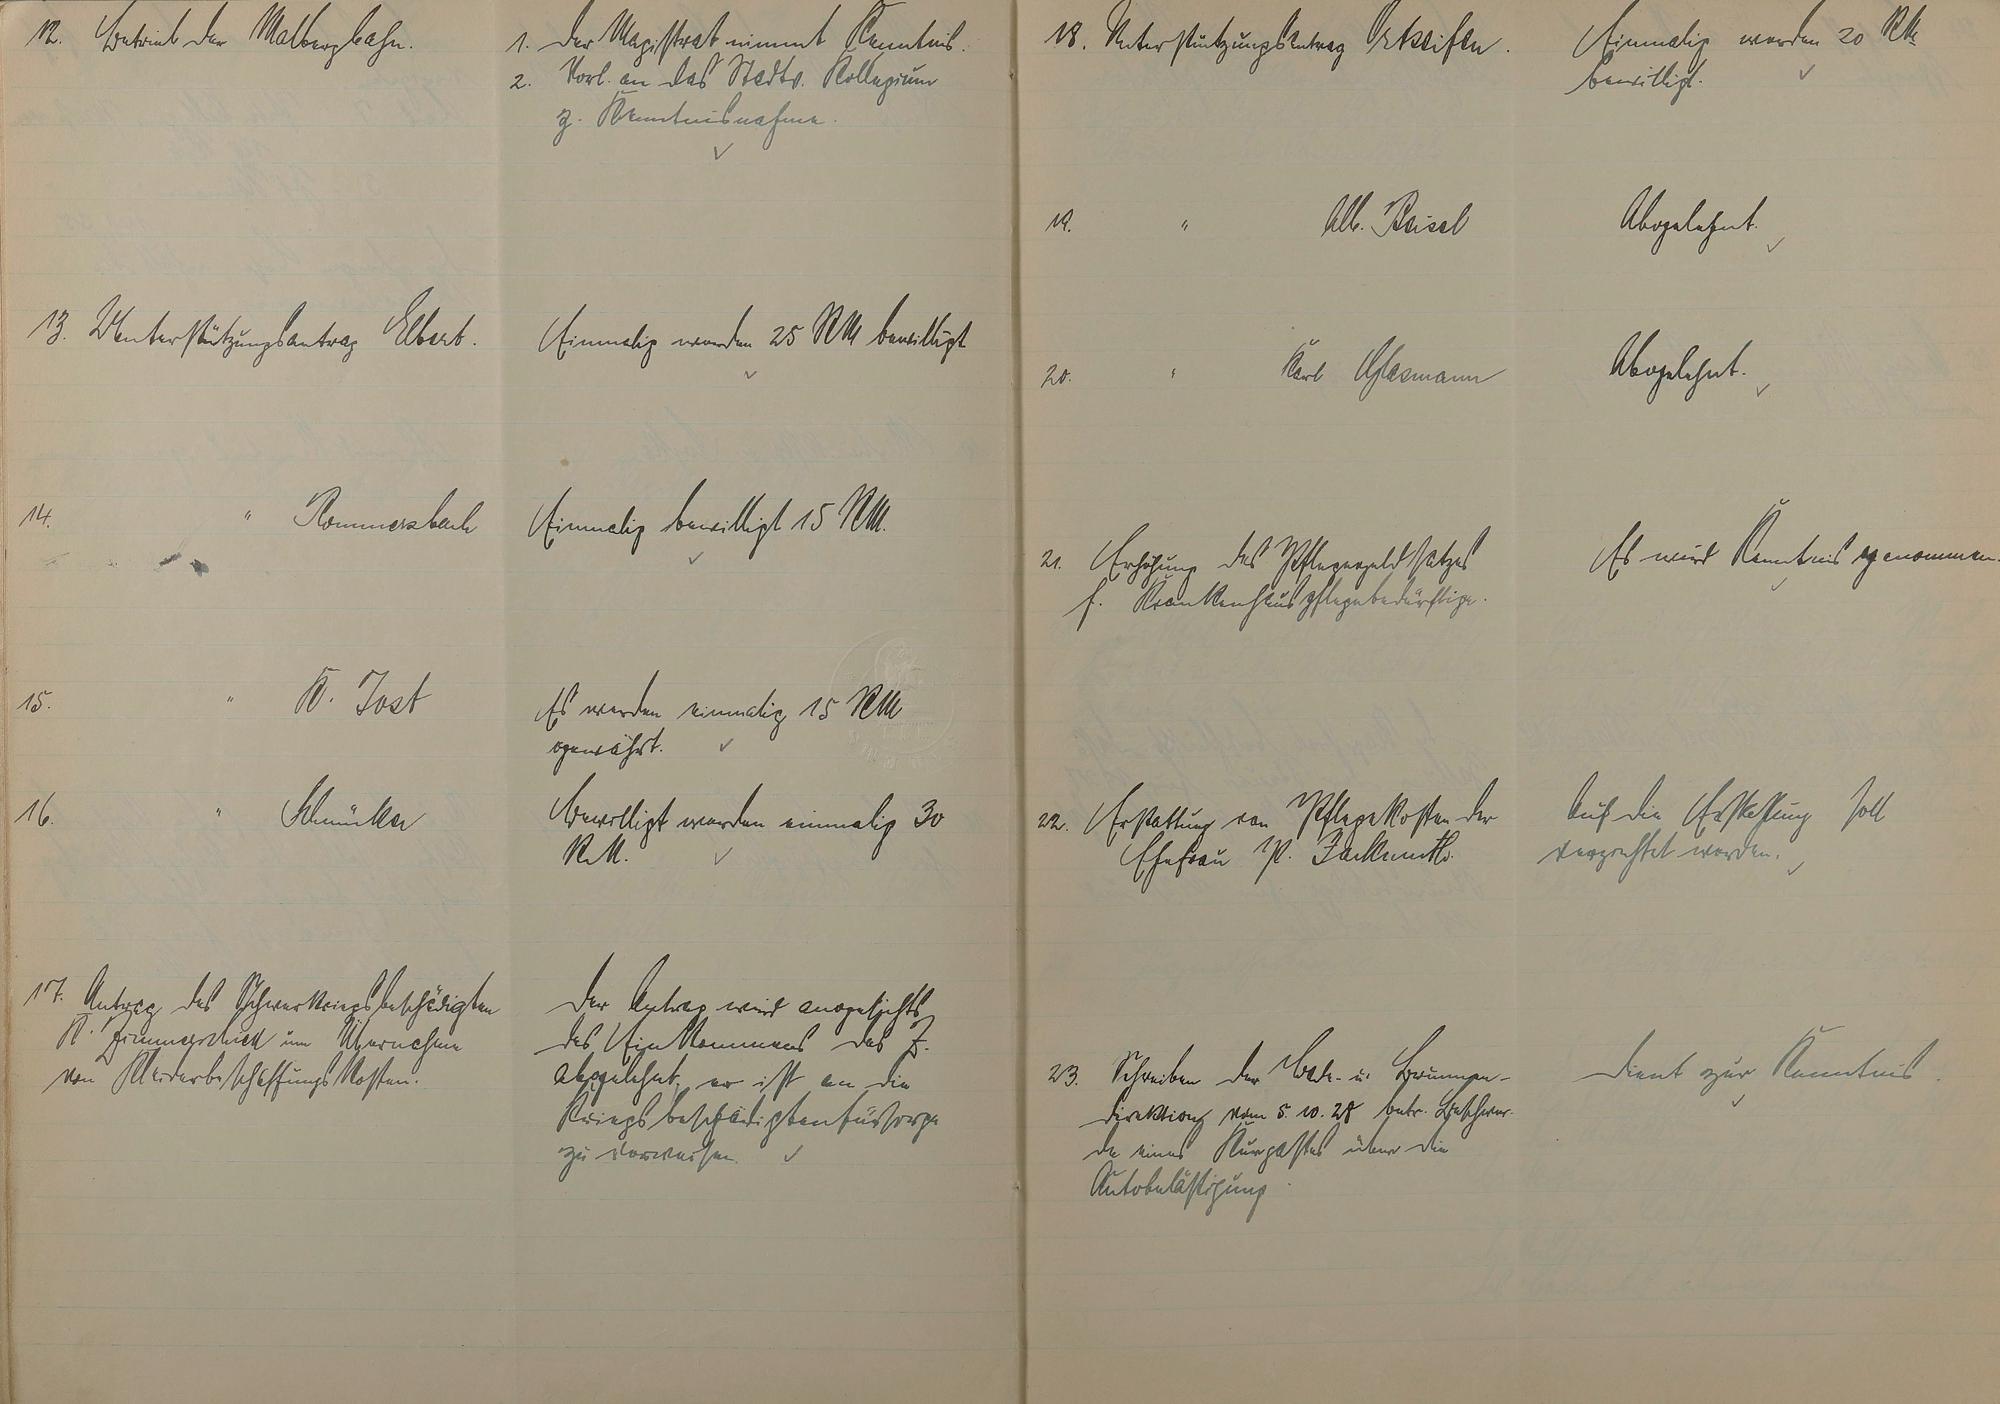 12. Betrieb der Malbergbahn.
1. Der Magistrat nimmt Kenntnis.
2. Vorl. an das Stadtv. Kollegium
z. Kenntnisnahme.
13. Unterstützungsantrag Elbert.
Einmalig werden 25 RM bewilligt
14. " Rommersbach
Einmalig bewilligt 15 RM.
15. " K. Jost
Es werden einmalig 15 RM
gewährt.
16. " Schmücker
Bewilligt werden einmalig 30
RM.
17. Antrag des Schwerkriegsbeschädigten
K. um Übernahme
von Kleiderbeschaffungskosten.
Der Antrag wird angesichts
des Einkommens des Z.
abgelehnt, er ist an die
Kriegsbeschädigtenfürsorge
zu verweisen.
18. Unterstützungsantrag Ortseifen.
Einmalig werden 20 RM
bewilligt.
19. " Alb. Beisel
Abgelehnt.
20. " Karl Glasmann
Abgelehnt.
21. Erhöhung des Pflegegeldsatzes
f. Krankenhauspflegebedürftige.
Es wird Kenntnis genommen.
22. Erstattung von Pflegekosten der
Ehefrau P.
Auf die Erstattung soll
verzichtet werden.
23. Schreiben der Bade- u. Brunnen-
direktion vom 5.10.28 betr. Beschwer-
de eines Kurgastes über die
Autobelästigung.
Dient zur Kenntnis.